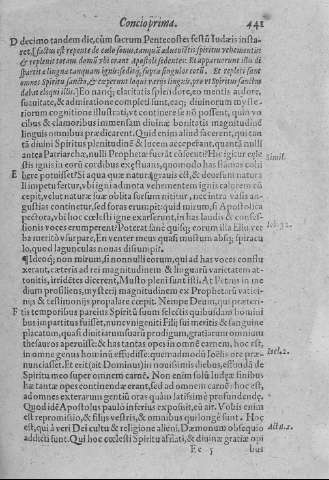 Concio prima. 441
D decimo tandem die, cùm sacrum Pentecostes festũ Iudæis insta-
ret, [factus est repente de cœlo sonus, tanquã aduenientis spiritus vehementis
& repleuit totam domũ vbi erant Apostoli sedentes. Et apparuerunt illis di
spartitæ linguæ tanquam ignis: seditq́; supra singulos eorũ. Et repleti sunt
omnes Spiritu sancto, & cœperunt loqui varijs linguis, prout Spiritus sanctus
dabat eloqui illis.] Eo nanq; claritatis splendore, eo mentis ardore,
suauitate, & admiratione completi sunt, eaq; diuinorum myste-
riorum cognitione illustrati, vt continere in se non possent, quin vo
cibus & clamoribus immensam diuinæ bonitatis magnitudinẽ
linguis omnibus prædicarent. Quid enim aliud facerent, qui tan
tã diuini Spiritus plenitudinẽ & lucem acceperant, quantã nulli
antea Patriarchæ, nulli Prophetæ fuerat Hic igitur
stis ignis in eorũ cordibus exæstuans, quomodo has flammas cohi Simil.
E bere potuisset? Si aqua quæ natura grauis est, & deorsum natura
li impetu fertur, vbi igni admota vehementem ignis calorem cõ
cepit, velut naturæ suæ oblita sursum nititur, nec intra vasis an-
gustias continetur, sed foras erumpit: quid mirum, si Apostolica
pectora, vbi hoc cœlesti igne exarserunt, in has laudis & confes-
sionis voces erumperent? Poterat sanè quisq; eorum illa Eliu ver Iob. 32.
ba meritò vsurpare, En venter meus quasi mustum absq; spiracu
lo, quod lagunculas nouas disrumpit.
¶ Ideoq; non mirum, si nonnulli eorum, qui ad has voces conflu
xerant, cæteris ad rei magnitudinem & linguarũ varietatem at-
tonitis, irridẽtes dicerent, Musto pleni sunt isti. At Petrus in me
dium prosiliens, mysterij magnitudinem ex Prophetarũ vatici-
nijs & testimonijs propalare cœpit. Nempe Deum, qui præteri-
F tis temporibus parcius Spiritũ suum selectis quibusdam homini
bus impartitus fuisset, nunc vnigeniti Filij sui meritis & sanguine
placatum, quasi diuitiarum suarũ prodigum, gratiarum omnium
thesauros aperuisse: & has tantas opes in omnẽ carnem, hoc est,
in omne genus hominũ effudisse: quemadmodũ Ioẽlis ore præ- Ioel. 2.
nunciasset. Et erit (ait Dominus) in nouissimis diebus, effundã de
Spiritu meo super omnem carnẽ. Non enim solũ Iudææ finibus
hæ tantæ opes continendæ erant, sed ad omnem carnẽ: hoc est,
ad omnes exterarum gentiũ oras quàm latissimè profundendæ.
Quod idẽ Apostolus paulò inferius exposuit, cũ ait. Vobis enim
est repromissio, & filijs vestris, & omnibus qui longè sunt. Hoc
est, qui à veri Dei cultu & religione alieni, Dæmonum obsequio Acto. 2.
addicti sunt. Qui hoc cœlesti Spiritu afflati, & diuinæ gratiæ opi
Ee 5 bus